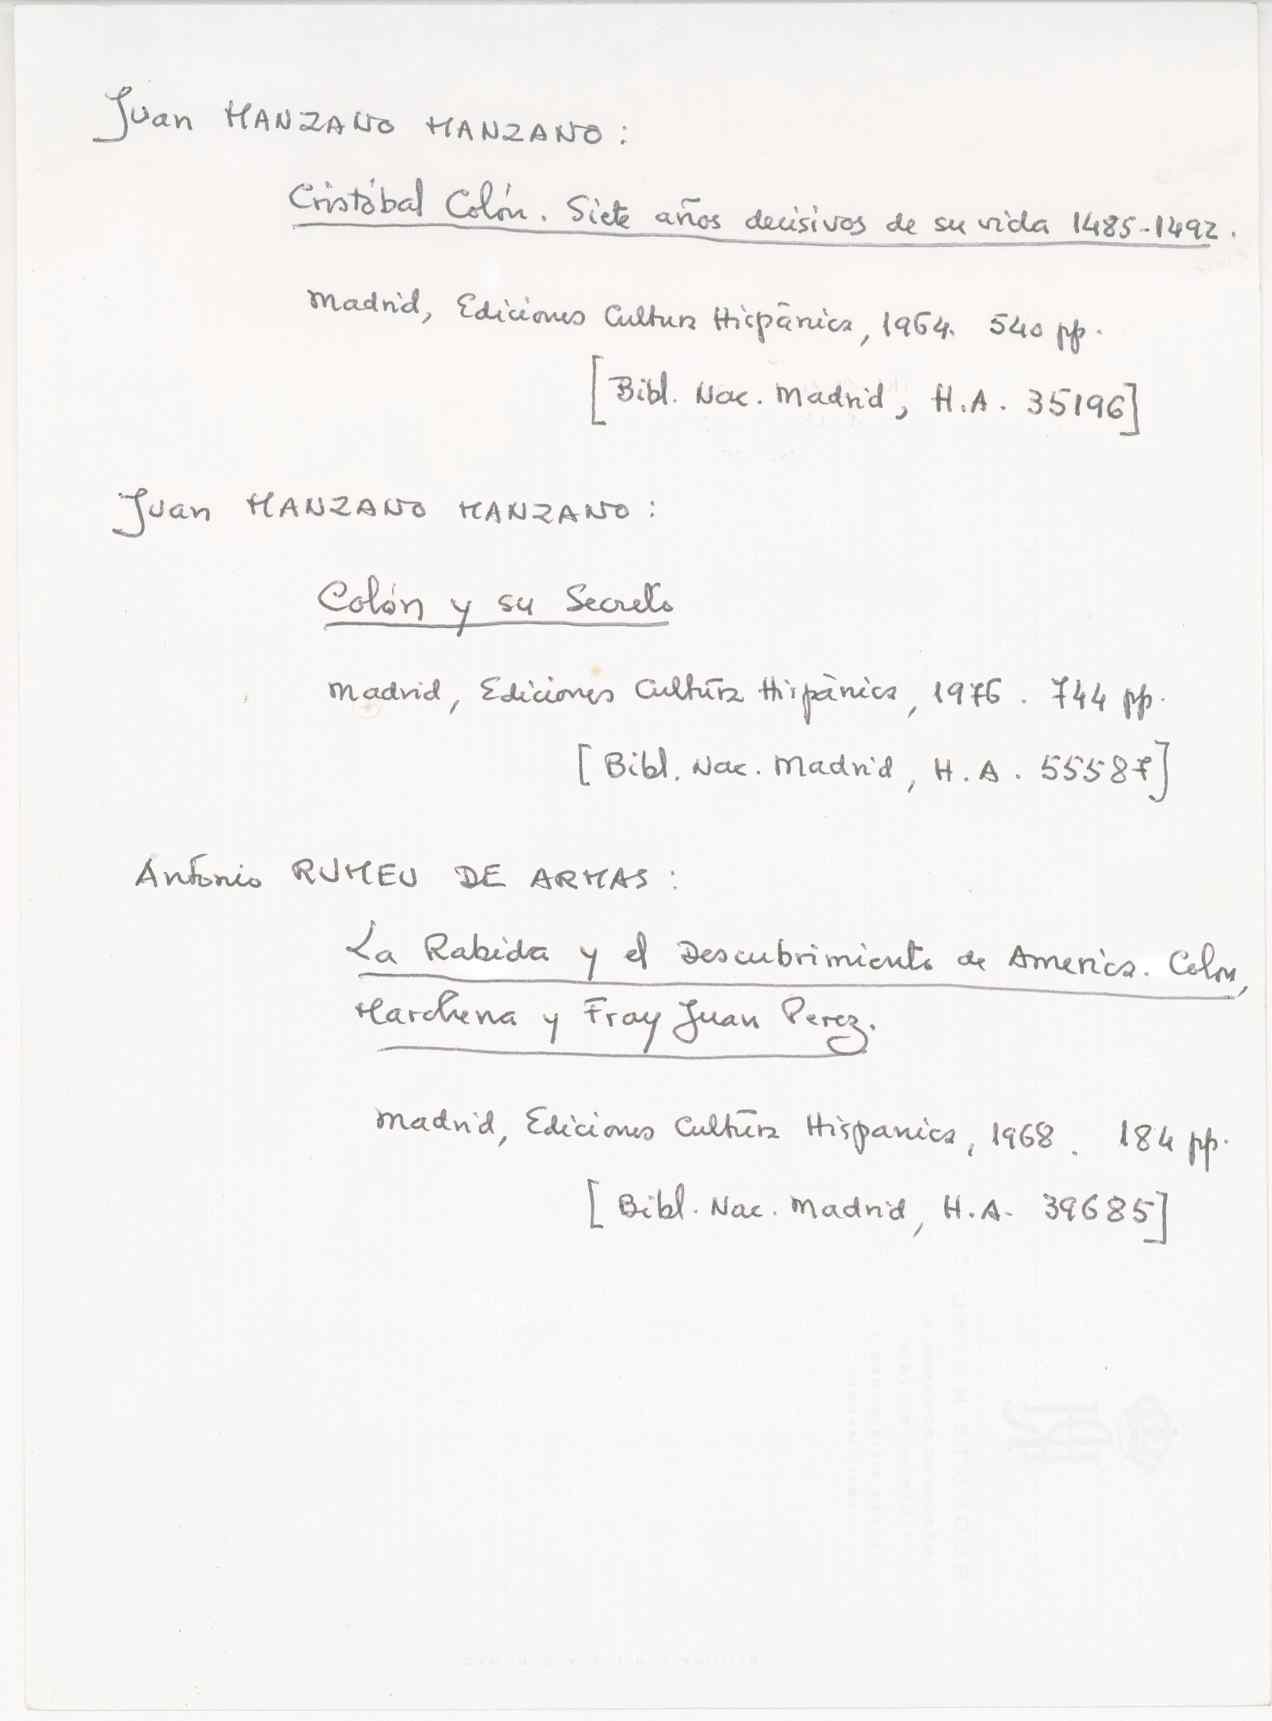 Juan MANZANO MANZANO:
Cristóbal Colón. Siete años decisivos de su vida 1485-1492.
Madrid, Ediciones Cultura Hispánica, 1964. 540 pp.
[Bibl. Nac. Madrid, H.A. 35196]
Juan MANZANO MANZANO:
Colón y su Secreto
Madrid, Ediciones Cultura Hispánica, 1976. 744 pp.
[Bibl. Nac. Madrid, H.A. 55587]
Antonio RUMEU DE ARMAS:
La Rabida y el Descubrimiento de America. Colon,
Marchena y Fray Juan Perez.
Madrid, Ediciones Cultura Hispanica, 1968. 184 pp.
[Bibl. Nac. Madrid, H.A. 39685]